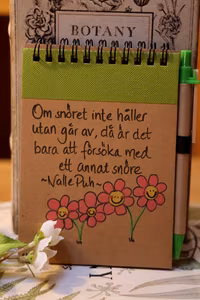 BOTANY
Om snöret inte håller
utan går av, då är det
bara att försöka med
ett annat snöre
~Nalle Puh~